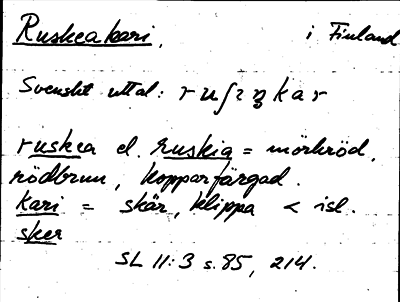 Ruskeakari, i Finland
Svenskt uttal: kar
ruskea el. ruskia = mörkröd,
rödbrun, kopparfärgad.
Kari = skär, klippa < isl.
sker
SL 11:3 s. 85, 214.